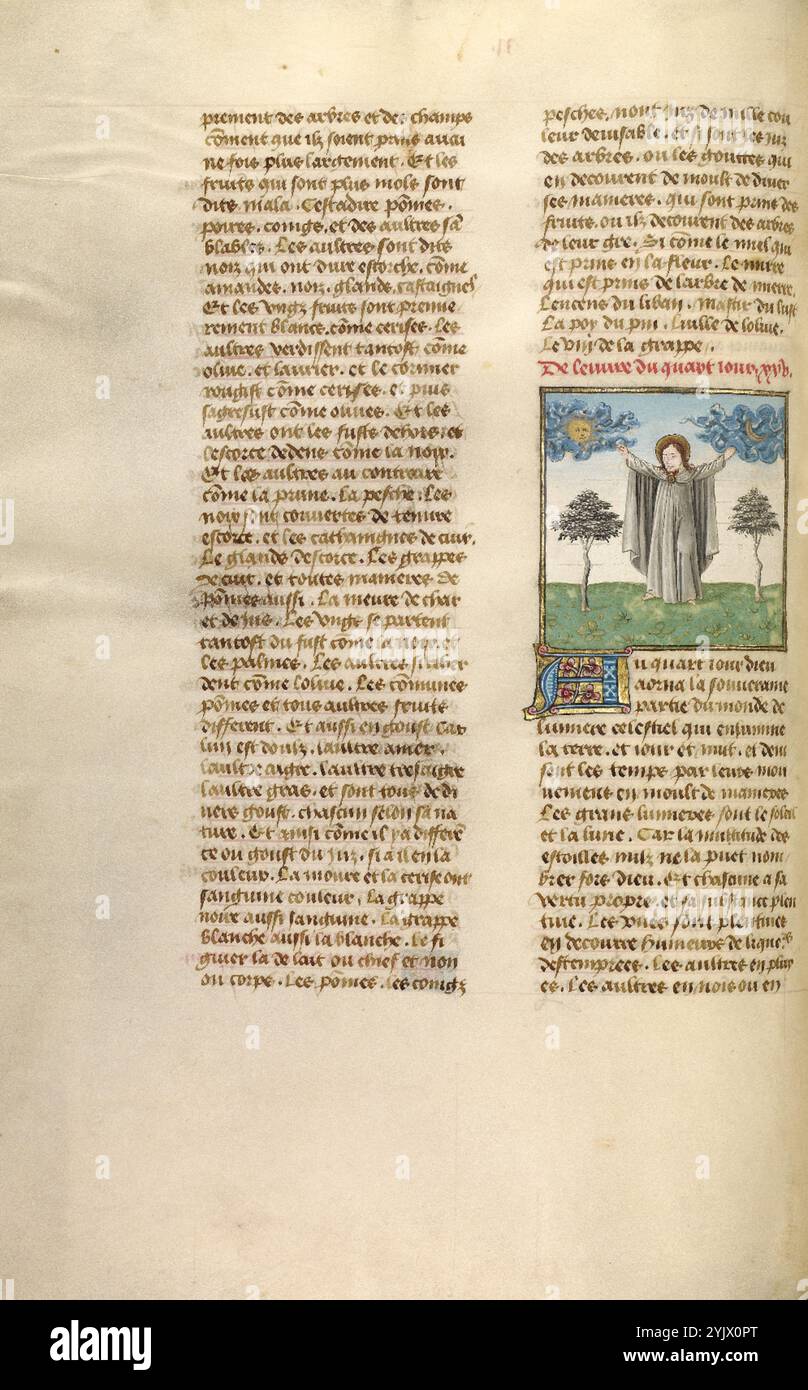 prement des arbres et des champs
cõment que ilz soient prins aucu
ne fois plus largement. Et les
fruits qui sont plus mols sont
dits mala. Cestadire põmes.
poires. coings. et des aultres sã
blables. Les aultres sont dits
noiz qui ont dure escorche. cõme
amandes. noiz. glande. castaignes
Et les vngz fruits sont premie
rement blancs. cõme cerises. Les
aultres verdissent tantost cõme
oliue. et laurier. et le cormier
rougist cõme cerises. et puis
cõme oliues. Et les
aultres ont les fusts dehors. et
lescorce dedens cõme la noix.
Et les aultres au contraire
cõme la prune. la pesche. Les
noix sont couuertes de tenure
escorce. et les de cuir.
Le glande descorce. Les grappes
de cuir. et toutes manieres de
põmes aussi. La meure de char
et de jus. Les vngs se partent
tantost du fust cõme la noix. et
les palmes. Les aultres
dent cõme loliue. Les cõmunes
põmes et tous aultres fruits
different. Et aussi en goust car
lun est doulz. lautre amer.
laultre aigre. laultre tresaigre
laultre gras. et sont tous de di
uers goust. chascun selon sa na
ture. Et ainsi cõme il y a differẽ
ce ou goust du juz. si a il en la
couleur. La moure et la cerise ont
sanguine couleur. la grappe
noire aussi sanguine. la grappe
blanche aussi la blanche. le fi
guier la de lait ou chief et non
ou corps. Les põmes. les coingz
pesches. nont juz de nulle cou
leur deuisable. et si sont les juz
des arbres. ou les gouttes qui
en decourent de moult de diuer
ses manieres. qui sont prins des
fruits. ou ilz decourent des arbres
de leur gre. Si cõme le miel qui
est prins en la fleur. Le mirre
qui est prins de larbre de mirre.
Lencens du liban. Mastic du
La poy du pin. Luille de loliue.
Le vin de la grappe.
De leuure du quart iour. xxv.
Au quart iour dieu
aorna la souueraine
partie du monde de
lumiere celestiel qui enlumine
la terre. et iour et nuit. et
sont les temps par leurs mou
uemens en moult de manieres
Les grans lumieres sont le soleil
et la lune. Car la multitude des
estoilles nulz ne la puet nom
brer fors dieu. Et chascune a sa
vertu propre et
Les vnes sont
en decourre humeurs de
destemprees. Les aultres en pluy
es. Les aultres en nois ou en
alamy
Image ID: 2YJX0PT
www.alamy.com